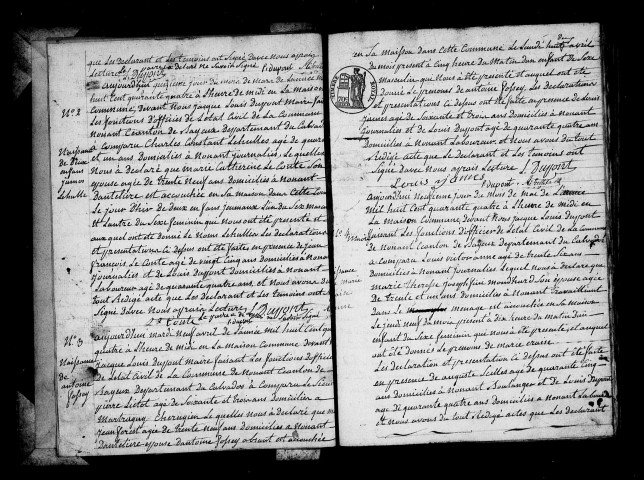 que Les declarant et Les temoins ont Signé d'avec Nous apres
Lecture
L Dupont
N° 2
Naissance
de deux
enfans
jumos
Sehulles
aujourdhui quinzieme jour du mois de mars de Lannee mil
huit Cent quarante quatre a heure de midi en La maison
Commune, devant Nous jacque Louis Dupont Maire faisant
Les fonctions d'officier de Letat Civil de La Commune de
Nonant Canton de Bayeux departement du Calvados
a Comparu Charles Constant Sehulles agé de quarante
et un ans domicilies à Nonant journalies, Le quelles
Nous à declaré que marie Catherine Le Conte Son
epouse agée de trente Neuf ans domicilies à Nonant
dantelire est acouchée en Sa Maison dans Cette Commune
Le jour d'hier de deux en fans jumaux Lun du Sex masculin
et Lautre du Sexe feminin qui Nous ont été presenté et
aux quel ont été donné Le Nom Sehulles Les declarations
et presentations Ci depus ont été faite en presence de jean
francois Le Conte agé de vingt Cinq ans domicilies à Nonant
journalies et de Louis Dupont domicilies à Nonant
Laboureur agé de quarante quatre ans et Nous avons du
tout Rédigé acte que Les declarant et Les temoins ont
Signé d'avec Nous apres Lecture
L Dupont
N° 3
Naissance
de
antoine
fossey
aujourdhui mardi Neuf avril de Lannée mil huit Cent quarante
quatre a Heure de midi en La maison Commune devant Nous
jacque Louis Dupont Maire faisant Les fonctions d'officier
de Letat Civil de La Commune de Nonant Canton de
Bayeux departement du Calvados à Comparu Le Sieur
pierre Liot agé de Soixante et trois ans domicilier a
Martragny Cherugien Le quelles Nous à declaré que marie
jean forest agée de trente Neuf ans domicilies à Nonant
Dantelire epouse d'antoine fossey absent est acouchée
en Sa maison dans Cette Commune Le Lundi huit avril
du mois present à Cinq heure du Matin d'un enfant de Sexe
Masculin qui Nous a été presenté et auquel ont été
donné Le prenoms de antoine fossey. Les declarations
et presentations Ci depus ont été faite en presence de Louis
james agé de Soixante et trois ans domicilies à Nonant
journalies et de Louis Dupont agé de quarante quatre ans
domicilies à Nonant Laboureur et Nous avons du tout
Rédigé acte que Le declarant et Les temoins ont
Signé d'avec Nous apres Lecture
L Dupont
Louis James
aujourdhui Neuvieme jour du Mois de Mai de Lannée
mil huit Cent quarante quatre à Lheure de midi en
La maison Commune devant Nous jacque Louis Dupont
faisant Les fonctions D'officier de Letat Civil de La Commune
de Nonant Canton de Bayeux departement du Calvados
a Comparu Louis victor anne agé de trente Six ans
domicilies à Nonant journalies Lequel Nous à declaré que
marie therese josephfin moudhard Son épouse agée
de trente et un ans domicilies à Nonant Travaillant
dans Le menage est acouchée en Sa maison
Le jeudi Neuf du mois present à dix heure du matin d'un
enfant du Sexe feminin que nous à été presenté, et auquel
ont été donné Le prenoms de marie
La declaration et presentation Ci depus ont été faite
en presence de auguste Scelles agé de quarante Cinq
ans domicilies à Nonant Boulanger et de Louis Dupont
agé de quarante quatre ans domicilies à Nonant Laboureur
et Nous avons du tout Rédigé actes que Les declarant